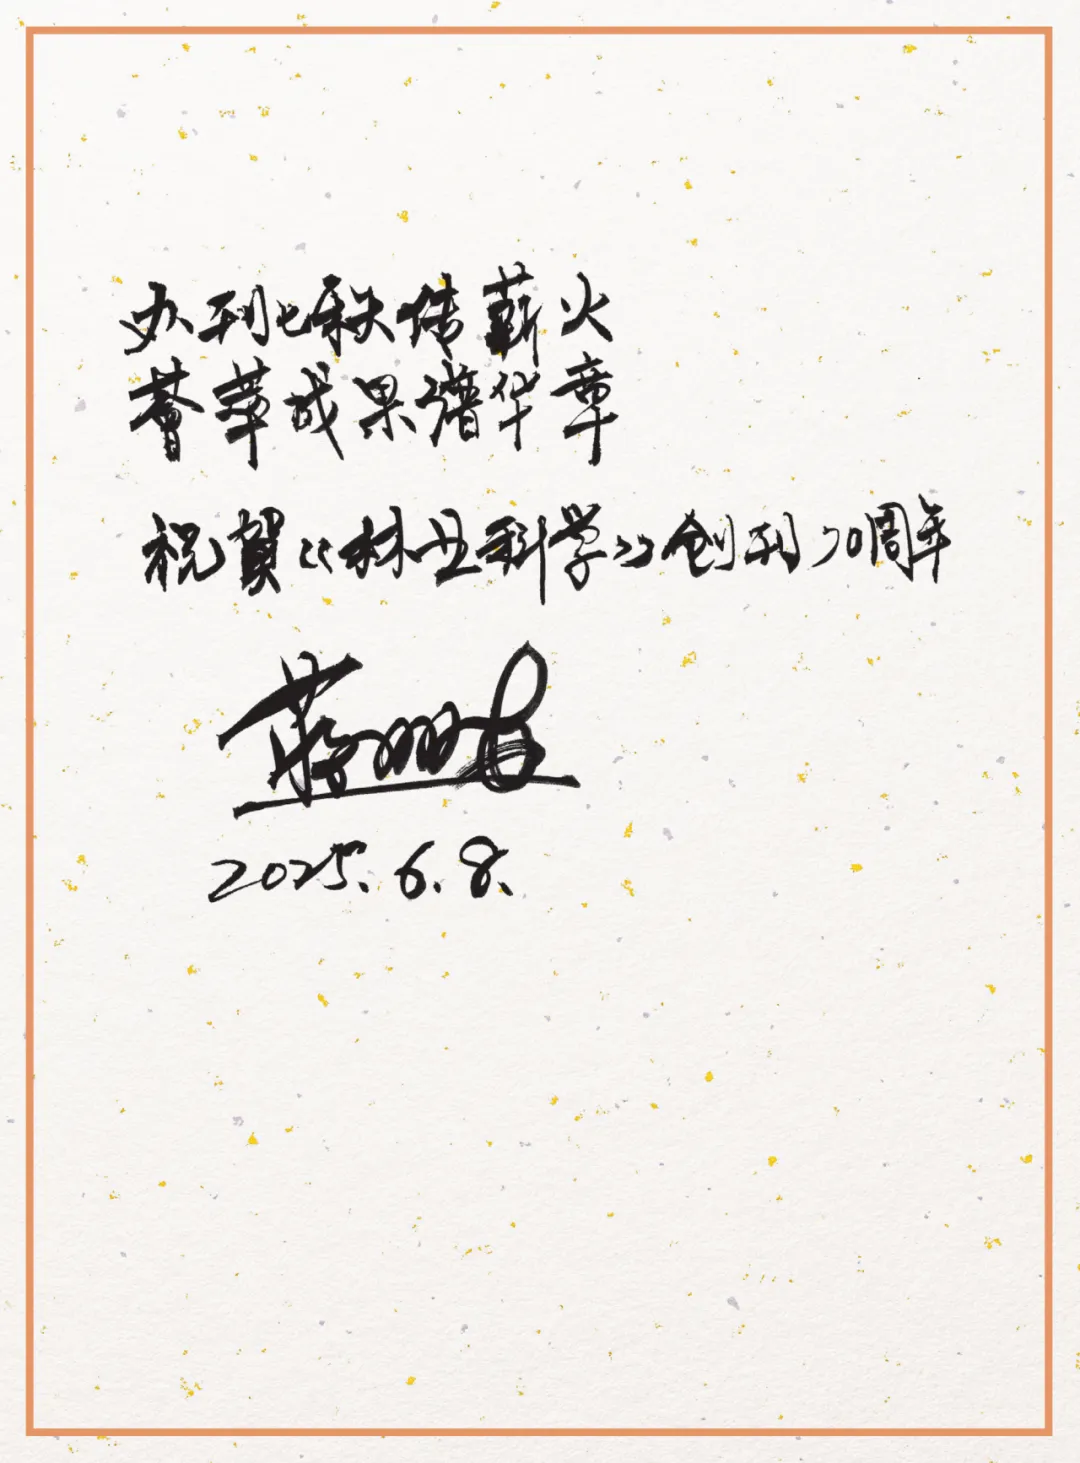 办刊七秩传薪火
荟萃成果谱华章
祝賀《林业科学》创刊70周年
蒋
2025.6.8.